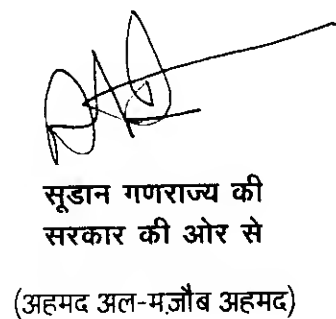 सूडान गणराज्य की
सरकार की ओर से
(अहमद अल-मज़ौब अहमद)